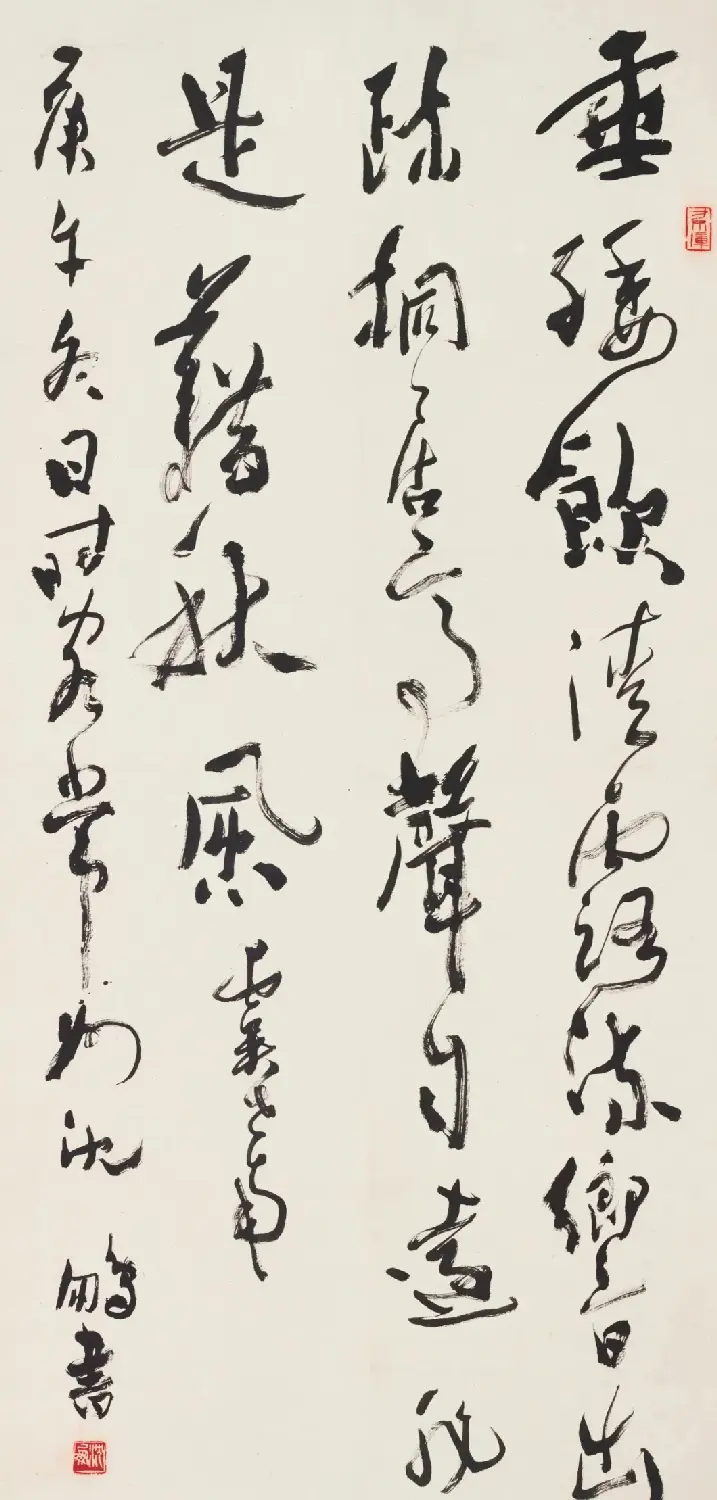 垂緌飲清露流響出
疎桐居高聲自遠非
是藉秋風 虞世南
庚午冬日时客常州沈鵬書